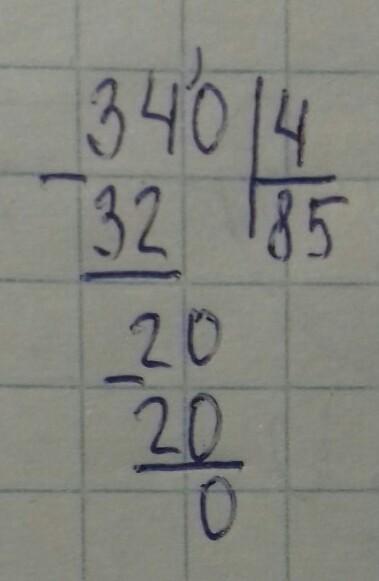 340 4
32 85
20
20
0